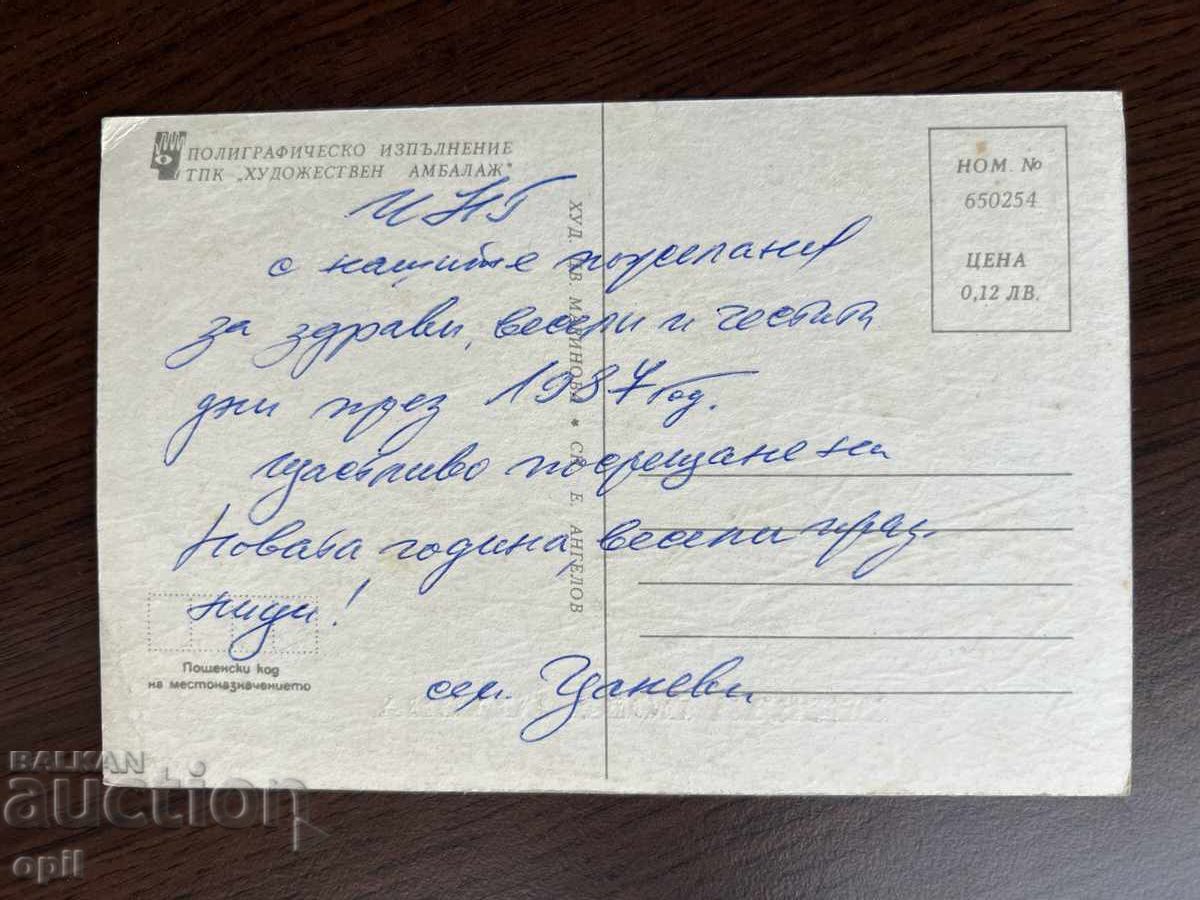 ПОЛИГРАФИЧЕСКО ИЗПЪЛНЕНИЕ
ТПК „ХУДОЖЕСТВЕН АМБАЛАЖ"
ЧНГ
с нашите пожелания
за здрави, весели и честити
дни през 1987 год.
Щастливо посрещане на
Новата година, весели праз
ници!
сем. Цаневи
Пощенски код
на местоназначението
ХУД. МАРИНОВА * СН. Е. АНГЕЛОВ
НОМ. №
650254
ЦЕНА
0,12 ЛВ.
BALKAN
auction
opil